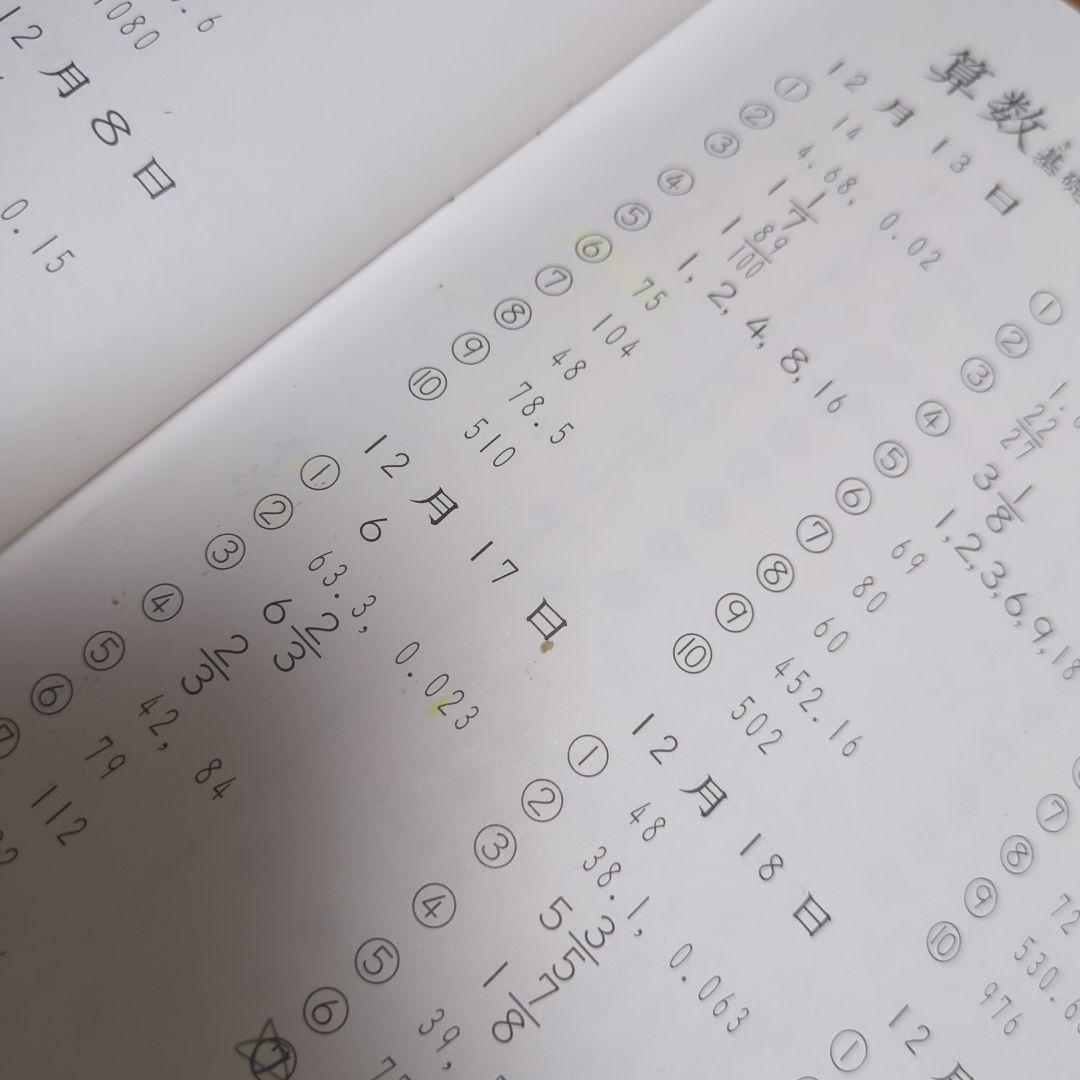 1080
12月8日
0.15
算数 基礎
12月13日
① 14
② 4.68, 0.02
③ 1 1/7
④ 1 89/100
⑤ 1, 2, 4, 8, 16
⑥ 75
⑦ 104
⑧ 48
⑨ 78.5
⑩ 510
12月17日
① 6
② 63.3, 0.023
③ 6 2/3
④ 2/3
⑤ 42, 84
⑥ 79
⑦ 112
①
②
③ 22/27
④ 3 1/8
⑤ 1,2,3,6,9,18
⑥ 69
⑦ 80
⑧ 60
⑨ 452.16
⑩ 502
12月18日
① 48
② 38.1, 0.063
③ 5 3/5
④ 1 7/8
⑤ 39,
⑥
⑦
⑦
⑧ 72
⑨ 530.6
⑩ 976
12月
①